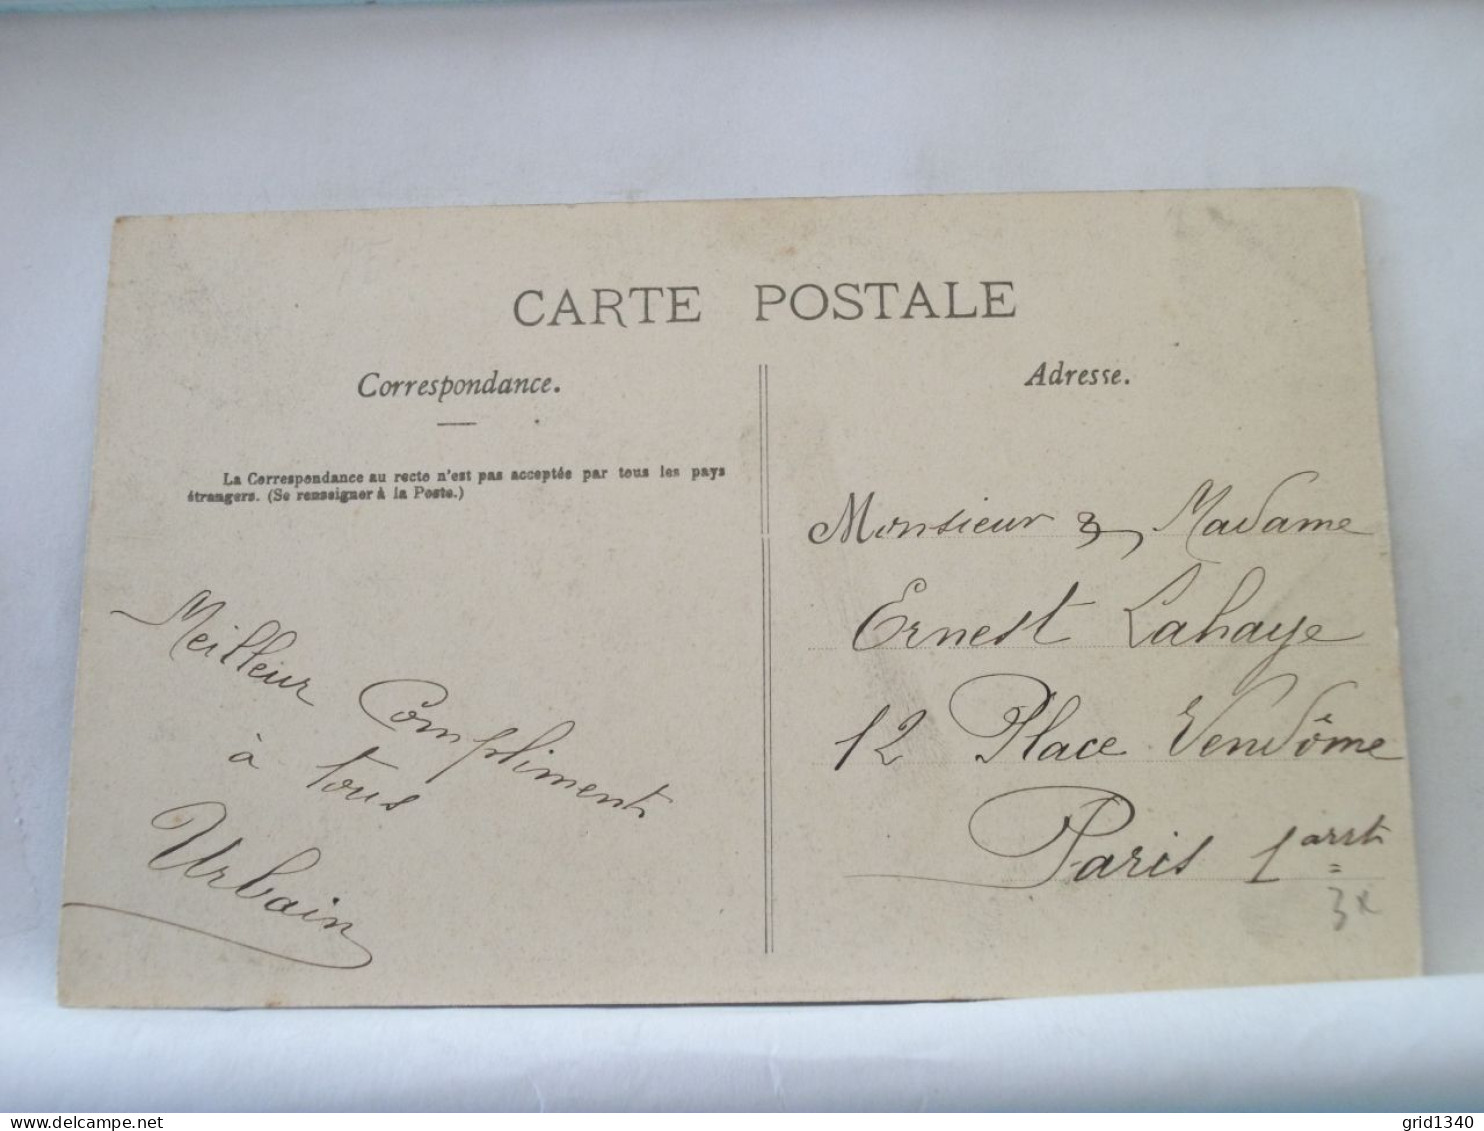 CARTE POSTALE
Correspondance.
La Correspondance au recto n'est pas acceptée par tous les pays
étrangers. (Se renseigner à la Poste.)
Meilleur Compliments
à tous
Urbain
Adresse.
Monsieur & Madame
Ernest Lahaye
12 Place Vendôme
Paris 1 arrt
3x
delcampe.net
grid1340